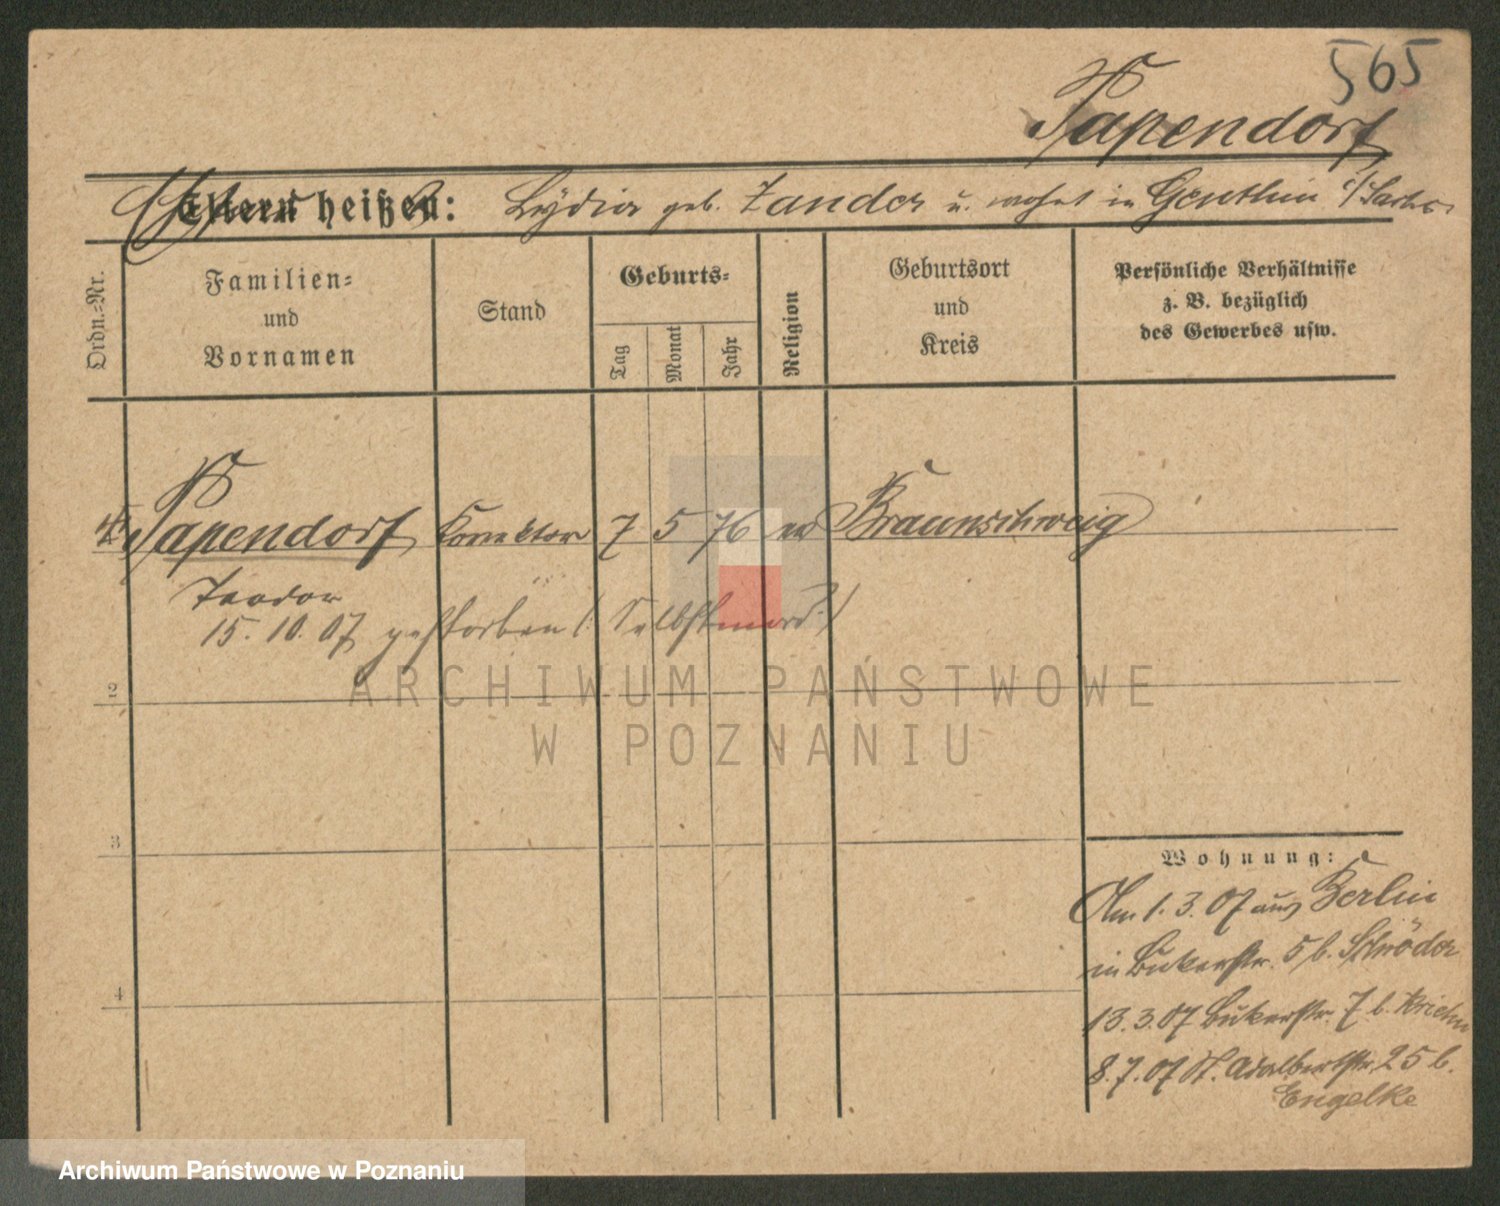 565
Papendorf
Eltern heißen: Lydia geb. Zander u. wohnt in Genthin
Ordn.-Nr.
Familien- und Vornamen
Stand
Geburts-
Tag
Monat
Jahr
Religion
Geburtsort und Kreis
Persönliche Verhältnisse
z. B. bezüglich
des Gewerbes usw.
Papendorf Korrektor 7 5 76 ev Braunschweig
Teodor
15. 10. 07 gestorben (Selbstmord.)
2
3
4
Wohnung:
Am 1. 3. 07 aus Berlin
in Bukerstr. 5 b. Schröder
13. 3. 07 Bukerstr. 7 b.
8. 7. 07 St. Adalbertstr. 25 b.
Engelke
ARCHIWUM PAŃSTWOWE
W POZNANIU
Archiwum Państwowe w Poznaniu